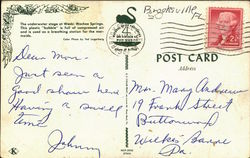 The underwater stage at Weeki Wachee Springs. This plastic "bubble" is full of compressed air and is used as a breathing station for the mermaids.
Color Photo by Ted Lagerberg
Brooksville, FL
POST CARD
Address
Dear Mom.
Just seen a
Good show here
Having a swell
time
Johnny
Mrs. Mary Andrews
19 Frank Street
Buttonwood
Wilkes Barre
Pa.